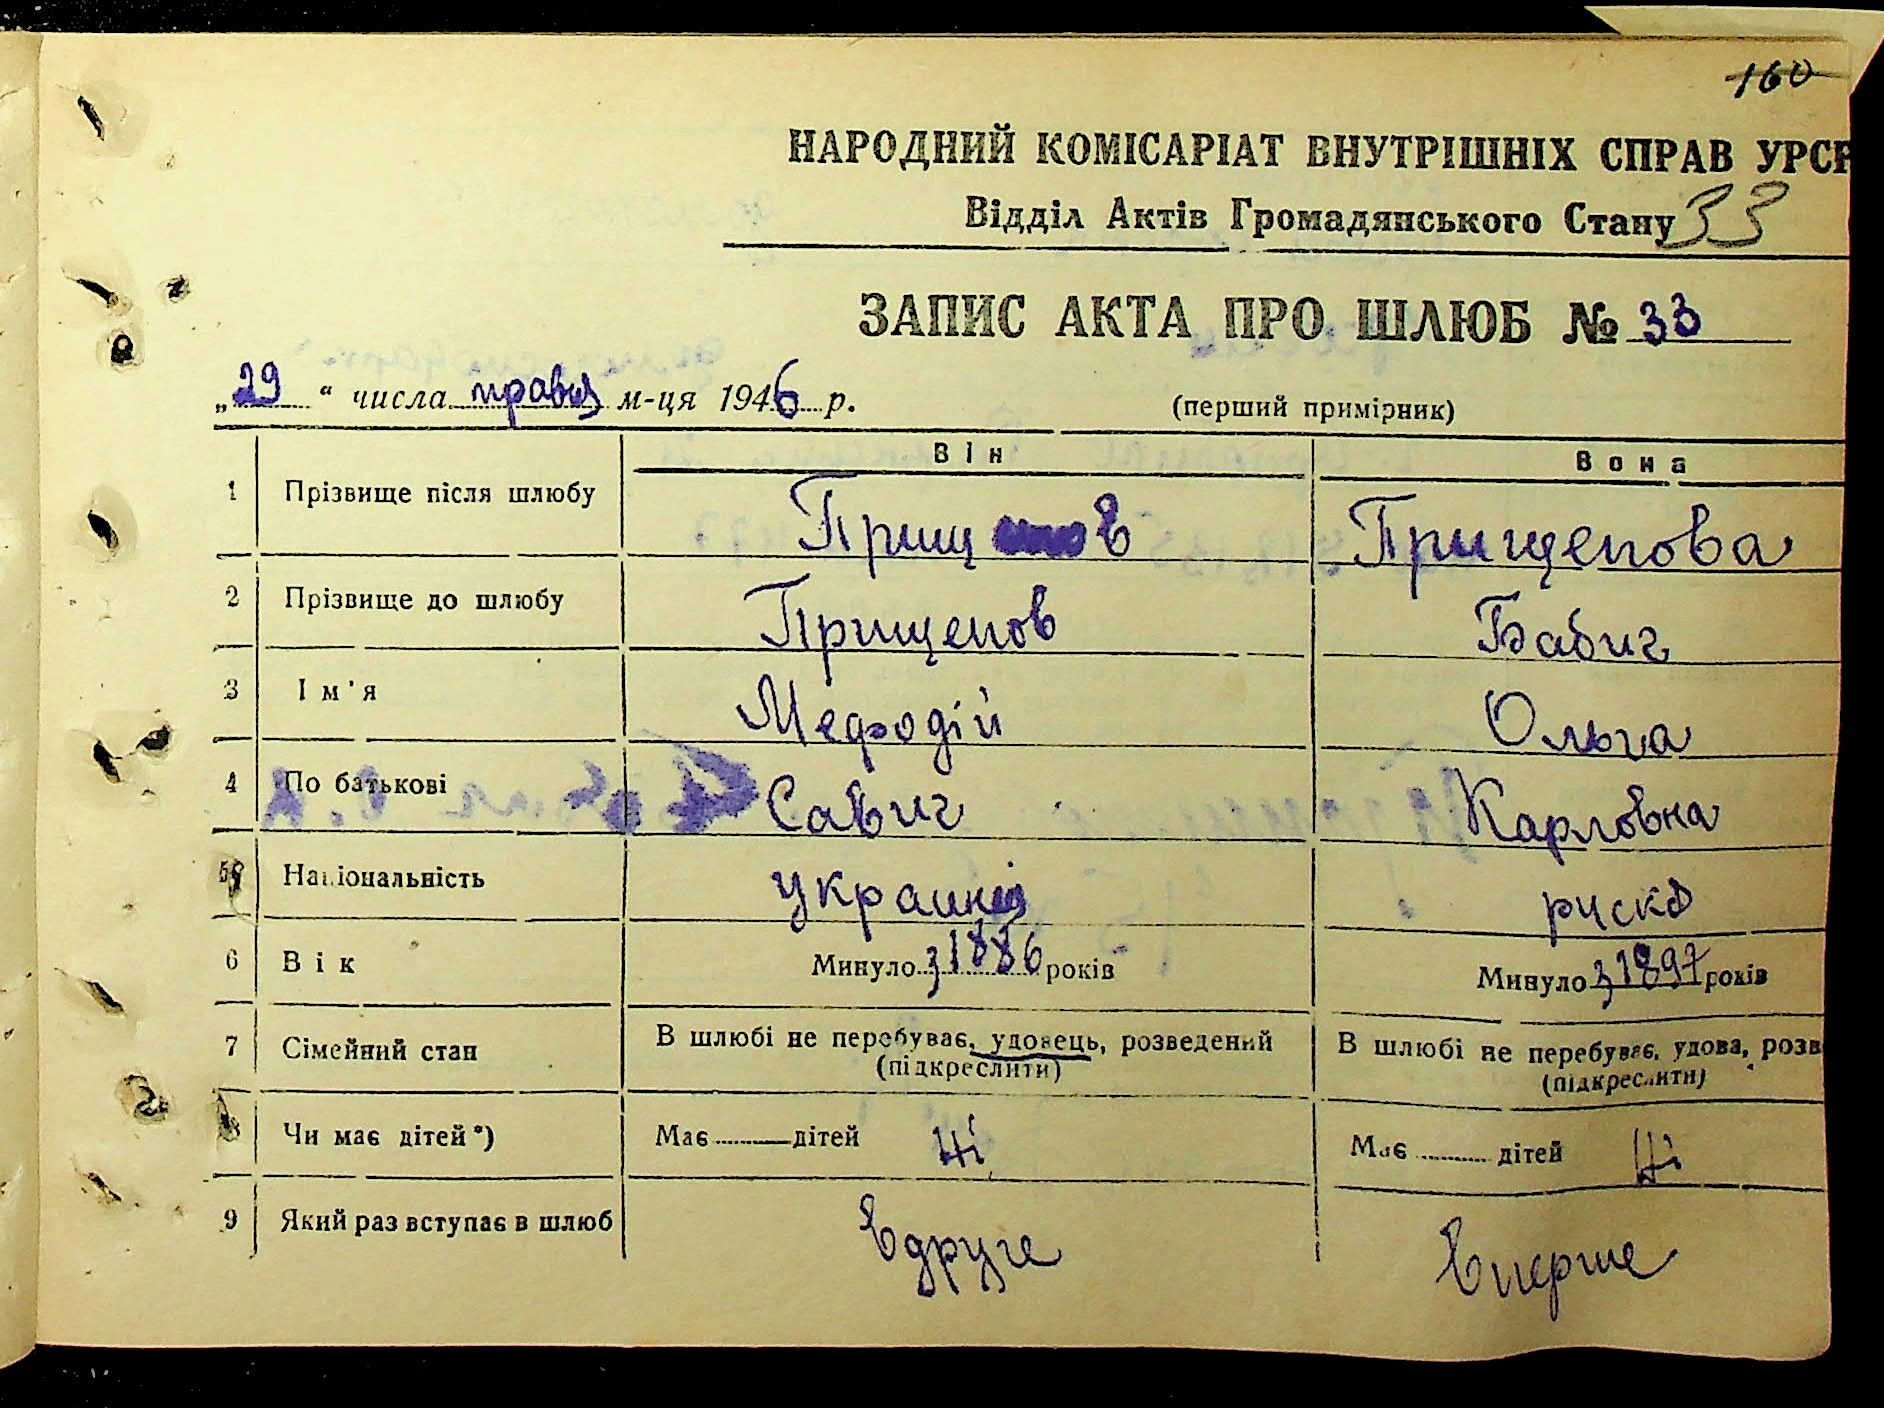 160
НАРОДНИЙ КОМІСАРІАТ ВНУТРІШНІХ СПРАВ УРСР
Відділ Актів Громадянського Стану 33
ЗАПИС АКТА ПРО ШЛЮБ № 33
„29“ числа травня м-ця 1946 р. (перший примірник)
Він Вона
1 Прізвище після шлюбу Прищ в Прищепова
2 Прізвище до шлюбу Прищепов Бабич
3 Ім'я Мефодій Ольга
4 По батькові Савич Карловна
5 Національність руска
6 Вік Минуло з 1886 років Минуло з 1897 років
7 Сімейний стан В шлюбі не перебуває, удовець, розведений В шлюбі не перебуває, удова, розв
(підкреслити) (підкреслити)
8 Чи має дітей*) Має дітей ні Має дітей ні
9 Який раз вступає в шлюб вдруге вперше